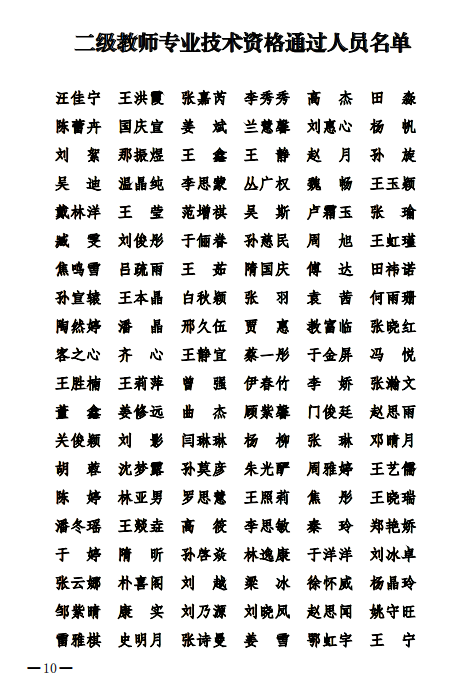 二级教师专业技术资格通过人员名单
汪佳宁 王洪霞 张嘉芮 李秀秀 高 杰 田 淼
陈蕾卉 国庆宣 姜 斌 兰慧馨 刘惠心 杨 帆
刘 絮 那振煜 王 鑫 王 静 赵 月 孙 旋
吴 迪 温晶纯 李思蒙 丛广权 魏 畅 王玉颖
戴林洋 王 莹 范增祺 吴 斯 卢霜玉 张 瑜
臧 雯 刘俊彤 于俪眷 孙慈民 周 旭 王虹瑾
焦鸣雷 吕疏雨 王 茹 隋国庆 傅 达 田祎诺
孙宣辕 王本晶 白秋颖 张 羽 袁 茜 何雨珊
陶然婷 潘 晶 邢久伍 贾 惠 敖富临 张晓红
客之心 齐 心 王静宜 蔡一彤 于金屏 冯 悦
王胜楠 王莉萍 曾 强 伊春竹 李 娇 张瀚文
董 鑫 姜修远 曲 杰 顾紫馨 门俊廷 赵思雨
关俊颖 刘 影 闫琳琳 杨 柳 张 琳 邓晴月
胡 蓉 沈梦露 孙莫彦 朱光 周雅婷 王艺儒
陈 婷 林亚男 罗思慧 王照莉 焦 彤 王晓瑞
潘冬瑶 王燚垚 高 筱 李思敏 秦 玲 郑艳娇
于 婷 隋 昕 孙啓焱 林逸康 于洋洋 刘冰卓
张云娜 朴喜阁 刘 越 梁 冰 徐怀威 杨晶玲
邹紫晴 康 实 刘乃源 刘晓凤 赵思闻 姚守旺
雷雅棋 史明月 张诗曼 姜 雪 鄂虹宇 王 宁
— 10 —